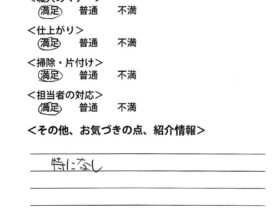 満足 普通 不満
<仕上がり>
満足 普通 不満
<掃除・片付け>
満足 普通 不満
<担当者の対応>
満足 普通 不満
<その他、お気づきの点、紹介情報>
特になし